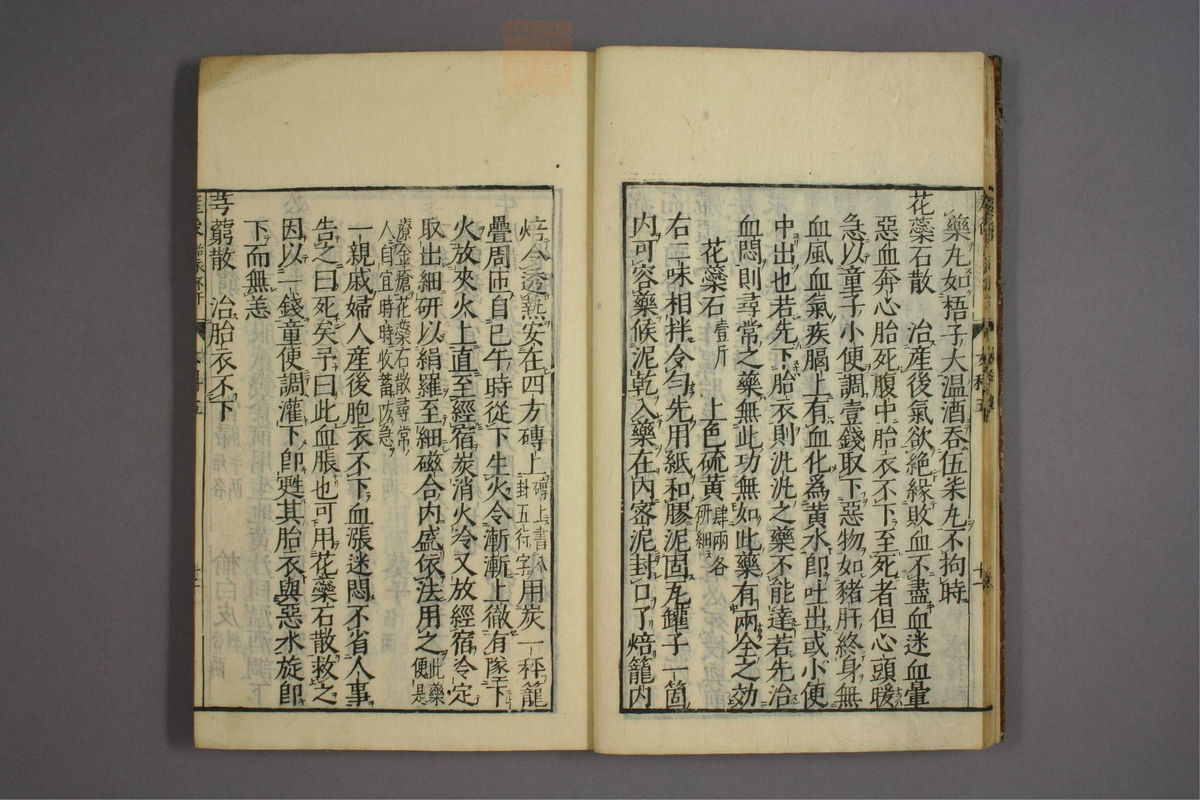 藥丸如梧子大温酒吞伍柒丸不拘時
花蘂石散 治産後氣欲絶緣敗血不盡血迷血暈
惡血奔心胎死腹中胎衣不下至死者但心頭暖
急以童子小便調壹錢取下惡物如豬肝終身無
血風血氣疾膈上有血化爲黄水即吐出或小便
中出也若先下胎衣則洗洗之藥不能達若先治
血悶則尋常之藥無此功無如此藥有兩全之効
花蘂石壹斤 上色硫黄肆兩各研細
右二味相拌令勻先用紙和膠泥固瓦罐子一箇
内可容藥候泥乾入藥在内宻泥封口了焙籠内
焙令透熱安在四方磚上磚上書八卦五行字用炭一秤籠
疊周匝自巳午時從下生火令漸漸上徹有墜下
火放夾火上直至經宿炭消火冷又放經宿冷定
取出細研以絹羅至細磁合内盛依法用之此藥便是
療金瘡花蘂石散尋常人自宜時時收蓄防急
一親戚婦人産後胞衣不下血漲迷悶不省人事
告之曰死矣予曰此血脹也可用花蘂石散救之
因以一錢童便調灌下即甦其胎衣與惡水旋即
下而無恙
芎藭散 治胎衣不下